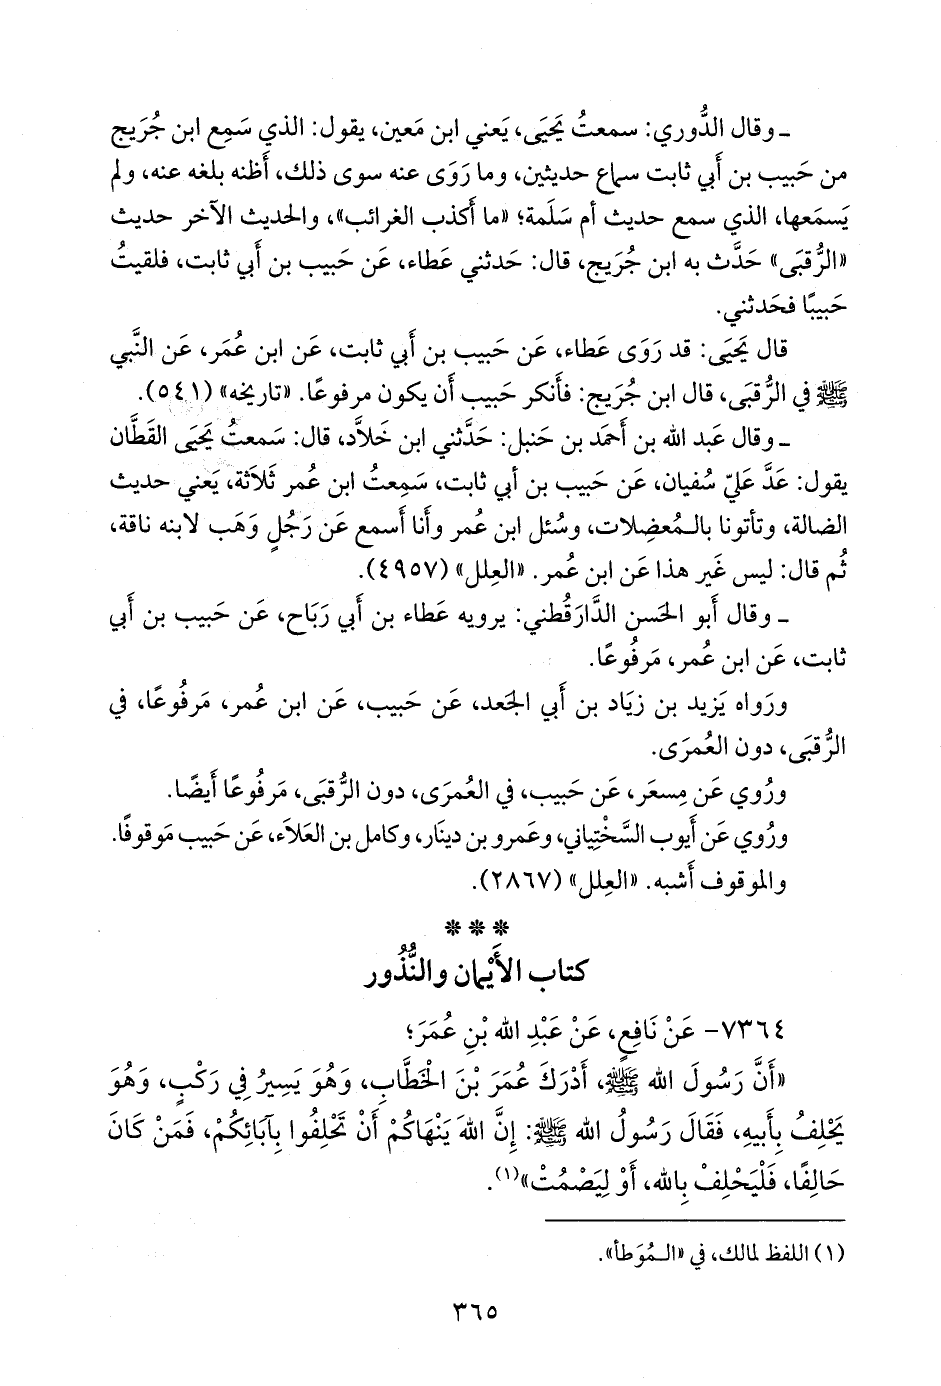 ـ وقال الدُّوري: سمعتُ يَحيَى، يَعني ابن مَعين، يقول: الذي سَمِع ابن جُريج
من حَبيب بن أَبي ثابت سماع حديثين، وما رَوَى عنه سوى ذلك، أَظنه بلغه عنه، ولم
يَسمَعها، الذي سمع حديث أم سَلَمة؛ «ما أَكذب الغرائب»، والحديث الآخر حديث
«الرُّقبَى» حَدَّث به ابن جُرَيج، قال: حَدثني عَطاء، عَن حَبيب بن أَبي ثابت، فلقيتُ
حَبيبًا فحَدثني.
قال يَحيَى: قد رَوَى عَطاء، عَن حَبيب بن أَبي ثابت، عَن ابن عُمَر، عَن النَّبي
ﷺ في الرُّقبَى، قال ابن جُرَيج: فأَنكر حَبيب أَن يكون مرفوعًا. «تاريخه» (٥٤١).
ـ وقال عَبد الله بن أَحمَد بن حَنبل: حَدَّثني ابن خَلاَّد، قال: سَمعتُ يَحيَى القَطَّان
يقول: عَدَّ عَليَّ سُفيان، عَن حَبيب بن أَبي ثابت، سَمِعتُ ابن عُمر ثَلاَثة، يَعني حديث
الضالة، وتأتونا بالـمُعضِلات، وسُئل ابن عُمر وأَنا أَسمع عَن رَجُلٍ وَهَب لابنه ناقة،
ثُم قال: ليس غَير هذا عَن ابن عُمر. «العِلل» (٤٩٥٧).
ـ وقال أَبو الحَسن الدَّارَقُطني: يرويه عَطاء بن أَبي رَبَاح، عَن حَبيب بن أَبي
ثابت، عَن ابن عُمر، مَرفُوعًا.
ورَواه يَزيد بن زيَاد بن أَبي الجَعد، عَن حَبيب، عَن ابن عُمر، مَرفُوعًا، في
الرُّقبَى، دون العُمرَى.
ورُوي عَن مِسعَر، عَن حَبيب، في العُمرَى، دون الرُّقبَى، مَرفُوعًا أَيضًا.
ورُوي عَن أَيوب السَّختِياني، وعَمرو بن دينَار، وكامل بن العَلاَء، عَن حَبيب مَوقوفًا.
والموقوف أَشبه. «العِلل» (٢٨٦٧).
* * *
كتاب الأَيْمان والنُّذُور
٧٣٦٤- عَنْ نَافِعٍ، عَنْ عَبْدِ الله بْنِ عُمَرَ؛
«أَنَّ رَسُولَ الله ﷺ، أَدْرَكَ عُمَرَ بْنَ الْخَطَّابِ، وَهُوَ يَسِيرُ فِي رَكْبٍ، وَهُوَ
يَحْلِفُ بِأَبِيهِ، فَقَالَ رَسُولُ الله ﷺ: إِنَّ اللهَ يَنْهَاكُمْ أَنْ تَحْلِفُوا بِآبَائِكُمْ، فَمَنْ كَانَ
حَالِفًا، فَلْيَحْلِفْ بِالله، أَوْ لِيَصْمُتْ»(١).
(١) اللفظ لمالك، في «الـمُوَطأ».
٣٦٥